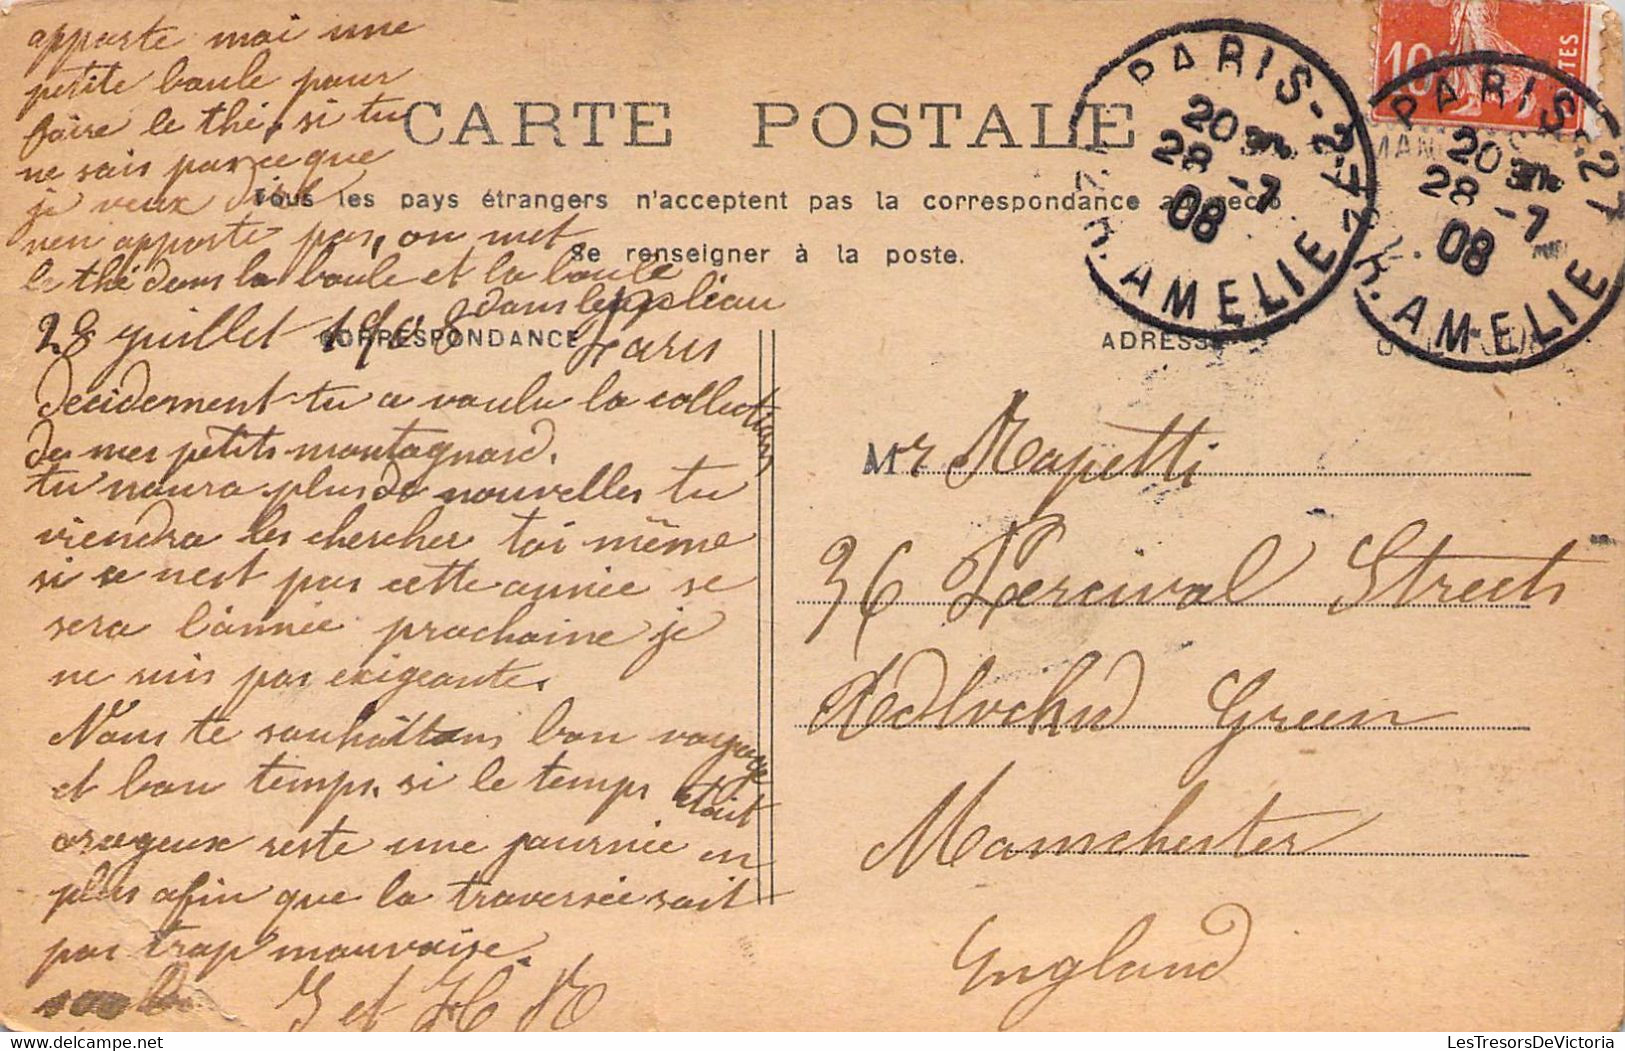 apporte moi une
petite boule pour
faire le thé, si tu
ne sais pas ce que
je veux dire
n'en apporte pas, on met
le thé dans la boule et la boule
dans l'eau
CARTE POSTALE
Tous les pays étrangers n'acceptent pas la correspondance au recto
Se renseigner à la poste.
CORRESPONDANCE
28 juillet 1908 Paris
Decidement tu a voulu la collection
de mes petits montagnard.
tu naura plus de nouvelles tu
viendra les chercher toi même
si ce nest pas cette année se
sera l'année prochaine je
ne suis pas exigeante.
Nous te souhaitons bon voyage
et bon temps. si le temps était
orageux reste une journée en
plus afin que la traversée soit
pas trop mauvaise.
ADRESSE
Mr Rapetti
36 Percival Streets
Green
Manchester
England
PARIS-27
20
28 -7
08
R. AMELIE
10c
PARIS-27
20
28 -7
08
R. AMELIE
LesTresorsDeVictoria